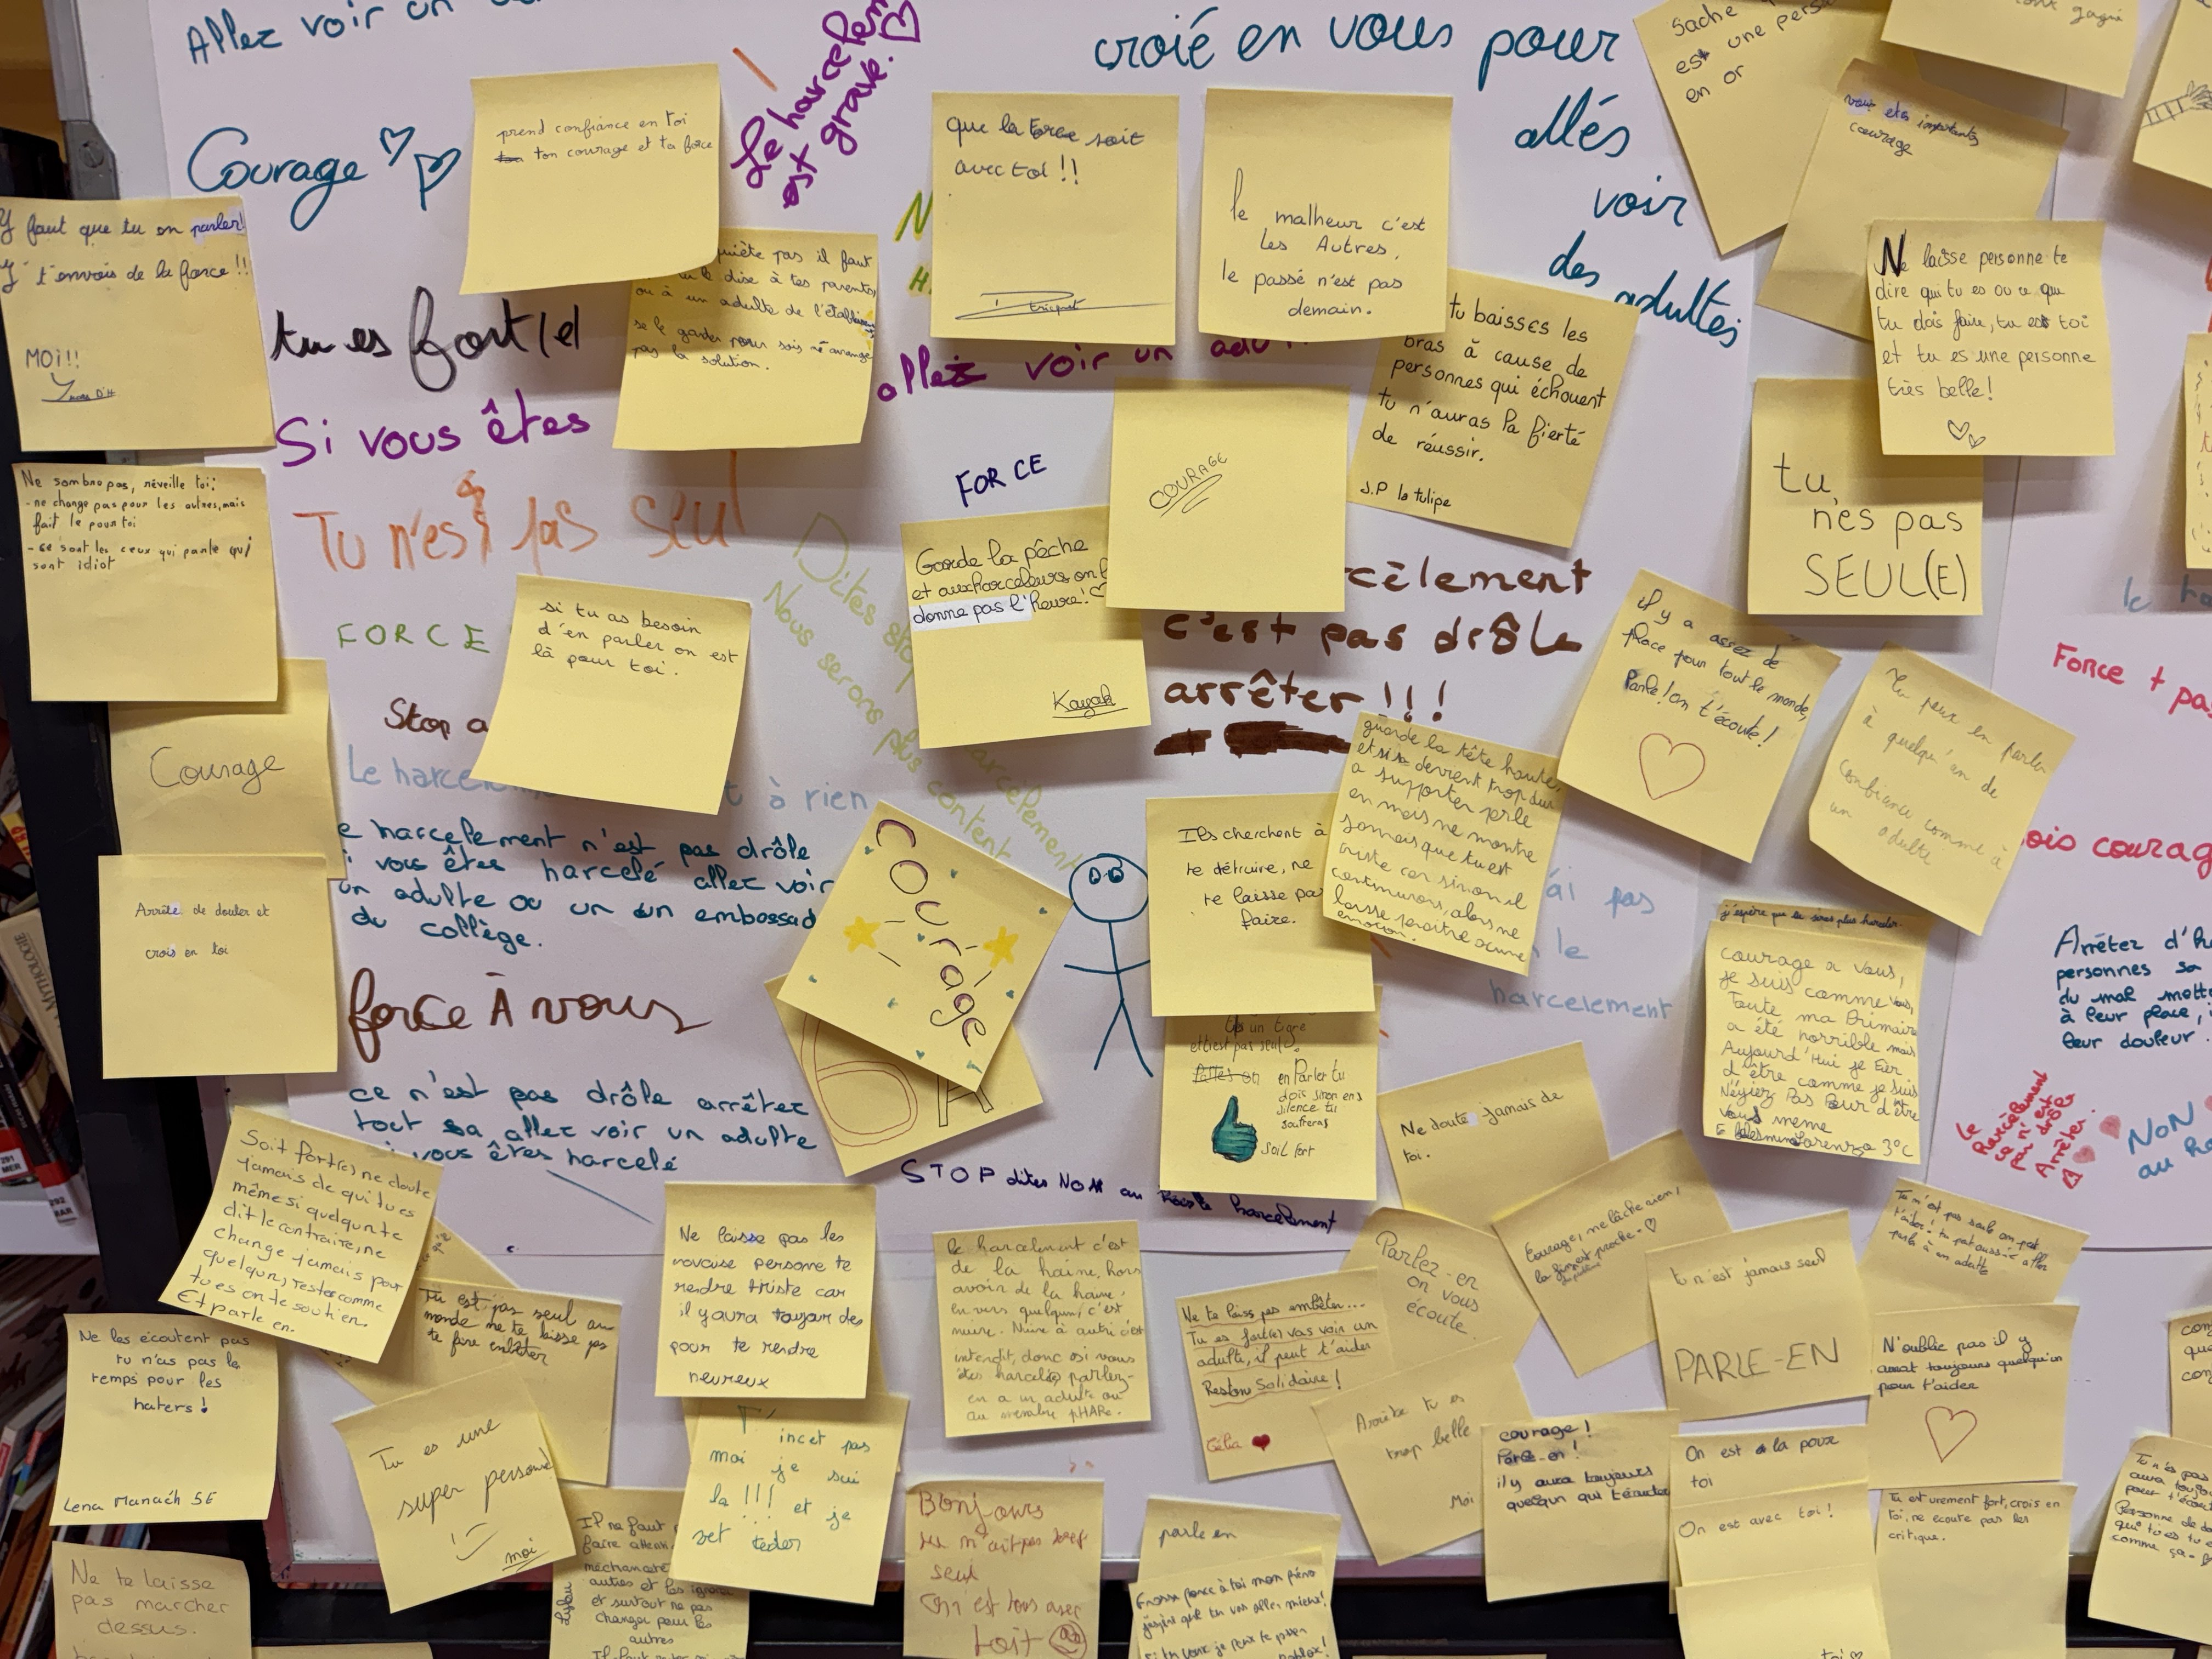 Allez voir un
croié en vous pour
allés
voir
des adultes
Le harcèlem
est grave.
Courage
prend confiance en toi
ton courage et ta force
que la force soit
avec toi !!
le malheur c'est
les Autres,
le passé n'est pas
demain.
Sache
est une pers
en or
vous etes importants
courage
Ne laisse personne te
dire qui tu es ou ce que
tu dois faire, tu es toi
et tu es une personne
très belle!
Y faut que tu en parler!
t'envois de la force !!
MOI!!
tu es fort/e
quiète pas il faut
tu le dise à tes parents,
ou à un adulte de l'établis
se le garder pour sois n'arrange
pas la solution.
allez voir un adu
tu baisses les
bras à cause de
personnes qui échouent
tu n'auras la fierté
de réussir.
J.P la tulipe
Si vous êtes
Tu n'es pas seul
FORCE
COURAGE
tu
n'es pas
SEUL(E)
Ne sombre pas, réveille toi:
- ne change pas pour les autres, mais
fait le pour toi
- se sont les ceux qui parle qui
sont idiot
Garde la pêche
et aux harceleurs on
donne pas l'heure!
Kayak
Dites stop
harcèlement
Nous serons plus content
cèlement
c'est pas drôle
arrêter !!!
FORCE
si tu as besoin
d'en parler on est
là pour toi.
Stop a
Le harce
t à rien
il y a assez de
place pour tout le monde,
Parle! on t'écoute!
Tu peux en parler
à quelqu'un de
confiance comme à
un adulte
Force + pa
ois courag
Courage
e harcelement n'est pas drôle
i vous êtes harcelé allez voir
un adulte ou un un embassad
du collège.
Arrête de douter et
crois en toi
Courage
6 A
Ils cherchent à
te détruire, ne
te laisse pas
faire.
guarde la tête haute,
et si sa devient trop dur
a supporter parle
en mais ne montre
jamais que tu est
triste car sinon il
continurons, alors ne
laisse paraitre aucune
emotion.
ai pas
le
harcelement
j'espère que tu seras plus harceler.
courage a vous,
je suis comme vous,
Toute ma Primaire
a été horrible mais
Aujourd'Hui je Fier
d'être comme je suis
N'éyiez Pas Peur d'être
vous meme
Lorenzo 3°C
Arrêtez d'h
personnes sa
du mal mette
à leur place,
leur douleur.
Le
harcèlement
ce n'est
pas drôle
Arrêter.
NON
au ha
force À vous
ce n'est pas drôle arrêter
tout sa allez voir un adulte
i vous êtes harcelé
un tigre
et t'est pas seul
en Parler tu
dois sinon en
silence tu
souffreras
Soit fort
STOP dites NON au harcelement
Ne doute jamais de
toi.
Soit fort(e) ne doute
jamais de qui tu es
même si quelqu'un te
dit le contraire, ne
change jamais pour
quelqu'un, reste comme
tu es on te soutien.
Et parle en.
Ne laisse pas les
movaise persone te
rendre triste car
il y aura toujour des
pour te rendre
heureux
le harcelement c'est
de la haine, hors
avoir de la haine,
envers quelqu'un, c'est
nuire. Nuire à autri c'est
interdit, donc si vous
êtes harcelé parlez-
en a un adulte ou
au membre pHARe.
Parlez-en
on vous
écoute.
Courage, ne lâche rien,
la fin est proche.
tu n'est jamais seul
PARLE-EN
Tu n'est pas seule on peut
t'aider! tu peut aussi aller
parlé à un adulte
Tu est pas seul au
monde ne te laisse pas
te faire embêter
Ne te laisse pas embêter...
Tu es fort(e) vas voir un
adulte, il peut t'aider
Restons Solidaire!
Célia
N'oublie pas il y
aurat toujours quelqu'un
pour t'aider
Ne les écoutent pas
tu n'as pas le
temps pour les
haters!
Lena Manach 5E
Tu es une
super personne
moi
incet pas
moi je sui
la !!! et je
vet teder
Arrête tu es
trop belle
Moi
courage !
Parle-en !
il y aura toujours
quelqun qui t'écoutera
On est là pour
toi
On est avec toi !
Tu est urement fort, crois en
toi, ne ecoute pas les
critique.
Ne te laisse
pas marcher
dessus.
Il ne faut
faire attenti
méchanceté
autres et les ignore
et surtout ne pas
changer pour les
autres
Bonjours
tu n'ait pas
seul
On est tous avec
toit
parle en
Grosse force à toi mon frère
j'espère que tu vas aller mieux!
si tu veux je peux te passer
Tu n'es pas
aura toujou
pour t'écou
Personne de
qui tu es tu e
comme ça